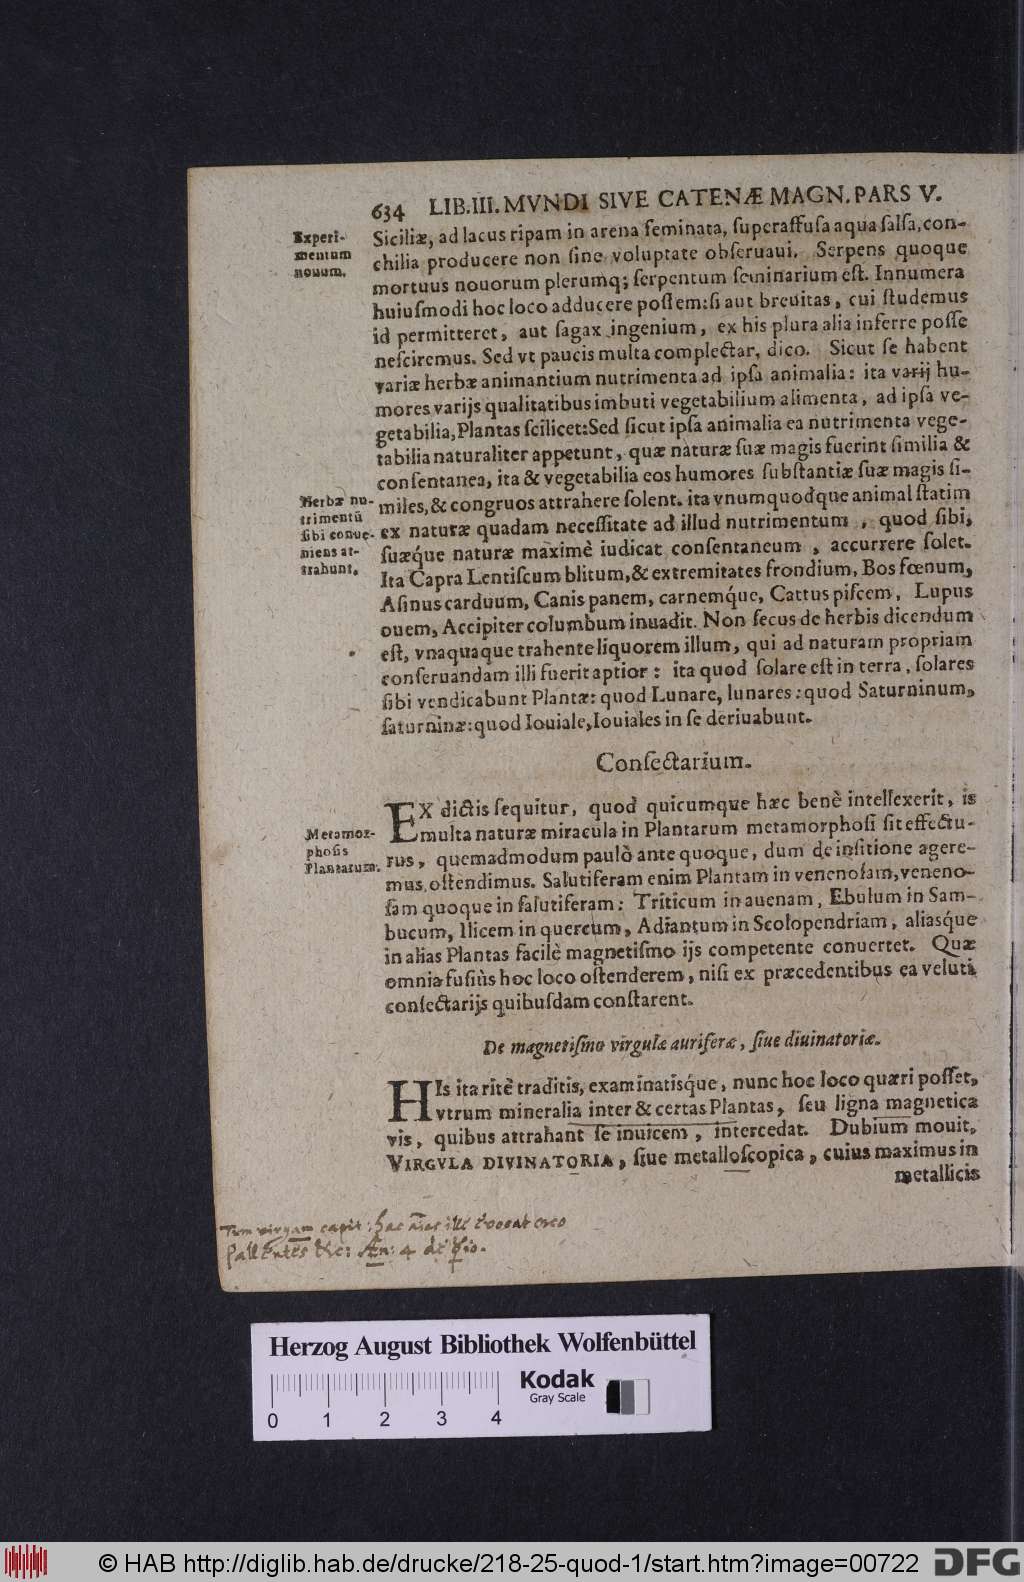 634 LIB.III. MVNDI SIVE CATENÆ MAGN. PARS V.
Experi-
mentum
nouum.
Siciliæ, ad lacus ripam in arena ſeminata, ſuperaffuſa aqua ſalſa, con-
chilia producere non ſine voluptate obſeruaui. Serpens quoque
mortuus nouorum plerumq; ſerpentum ſeminarium eſt. Innumera
huiuſmodi hoc loco adducere poſſem: ſi aut breuitas, cui ſtudemus
id permitteret, aut ſagax ingenium, ex his plura alia inferre poſſe
neſciremus. Sed vt paucis multa complectar, dico. Sicut ſe habent
variæ herbæ animantium nutrimenta ad ipſa animalia: ita varij hu-
mores varijs qualitatibus imbuti vegetabilium alimenta, ad ipſa ve-
getabilia, Plantas ſcilicet: Sed ſicut ipſa animalia ea nutrimenta vege-
tabilia naturaliter appetunt, quæ naturæ ſuæ magis fuerint ſimilia &
conſentanea, ita & vegetabilia eos humores ſubſtantiæ ſuæ magis ſi-
Herbæ nu-
trimentū
ſibi conue-
niens at-
trahunt.
miles, & congruos attrahere ſolent. ita vnumquodque animal ſtatim
ex naturæ quadam neceſſitate ad illud nutrimentum, quod ſibi,
ſuæq́ue naturæ maximè iudicat conſentaneum, accurrere ſolet.
Ita Capra Lentiſcum blitum, & extremitates frondium, Bos fœnum,
Aſinus carduum, Canis panem, carnemq́ue, Cattus piſcem, Lupus
ouem, Accipiter columbum inuadit. Non ſecus de herbis dicendum
eſt, vnaquaque trahente liquorem illum, qui ad naturam propriam
conſeruandam illi fuerit aptior: ita quod ſolare eſt in terra, ſolares
ſibi vendicabunt Plantæ: quod Lunare, lunares: quod Saturninum,
ſaturninæ: quod Iouiale, Iouiales in ſe deriuabunt.
Conſectarium.
Metamor-
phoſis
Plantarum.
EX dictis ſequitur, quod quicumque hæc benè intellexerit, is
multa naturæ miracula in Plantarum metamorphoſi ſit effectu-
rus, quemadmodum paulò ante quoque, dum de inſitione agere-
mus, oſtendimus. Salutiferam enim Plantam in venenoſam, veneno-
ſam quoque in ſalutiferam: Triticum in auenam, Ebulum in Sam-
bucum, Ilicem in quercum, Adiantum in Scolopendriam, aliasq́ue
in alias Plantas facilè magnetiſmo ijs competente conuertet. Quæ
omnia fuſiùs hoc loco oſtenderem, niſi ex præcedentibus ea veluti
conſectarijs quibuſdam conſtarent.
De magnetiſmo virgulæ auriferæ, ſiue diuinatoriæ.
HIs ita ritè traditis, examinatisq́ue, nunc hoc loco quæri poſſet,
vtrum mineralia inter & certas Plantas, ſeu ligna magnetica
vis, quibus attrahant ſe inuicem, intercedat. Dubium mouit,
VIRGVLA DIVINATORIA, ſiue metalloſcopica, cuius maximus in
metallicis
Tum virgam capit: hac illé evocat orco
Pallentes &c: Æn: 4
Herzog August Bibliothek Wolfenbüttel
0 1 2 3 4
Kodak
Gray Scale
© HAB http://diglib.hab.de/drucke/218-25-quod-1/start.htm?image=00722
DFG